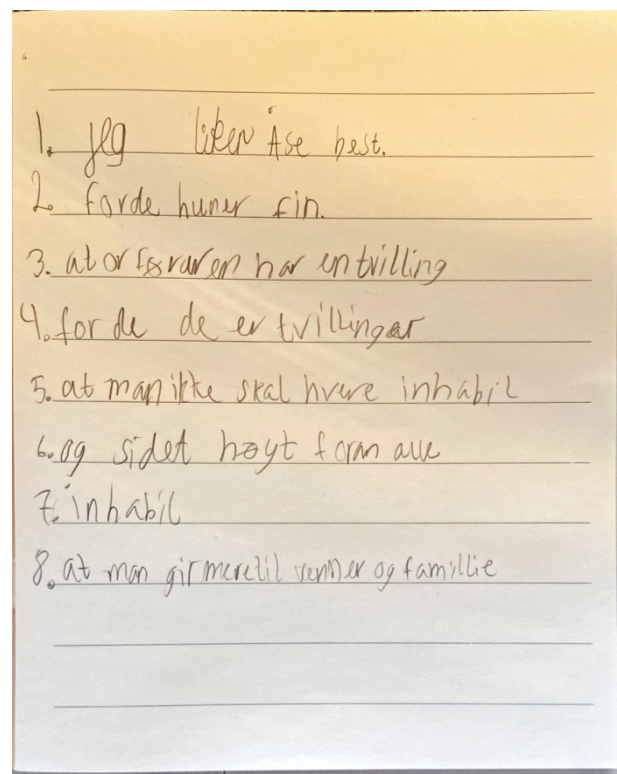 1. jeg liker Åse best.
2. forde huner fin.
3. at orføraren har en tvilling
4. for de de er tvillingar
5. at man ikke skal hvere inhabil
6. og sidet høyt foran alle
7. inhabil
8. at man gir meretil venner og famillie